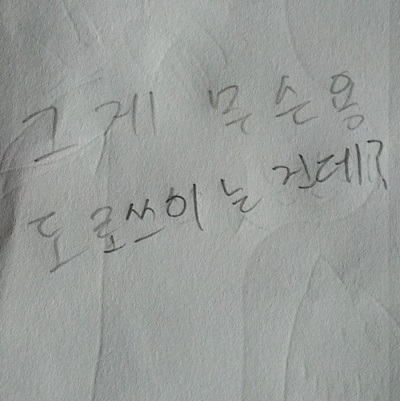 그게 무슨용
도로쓰이는건데?